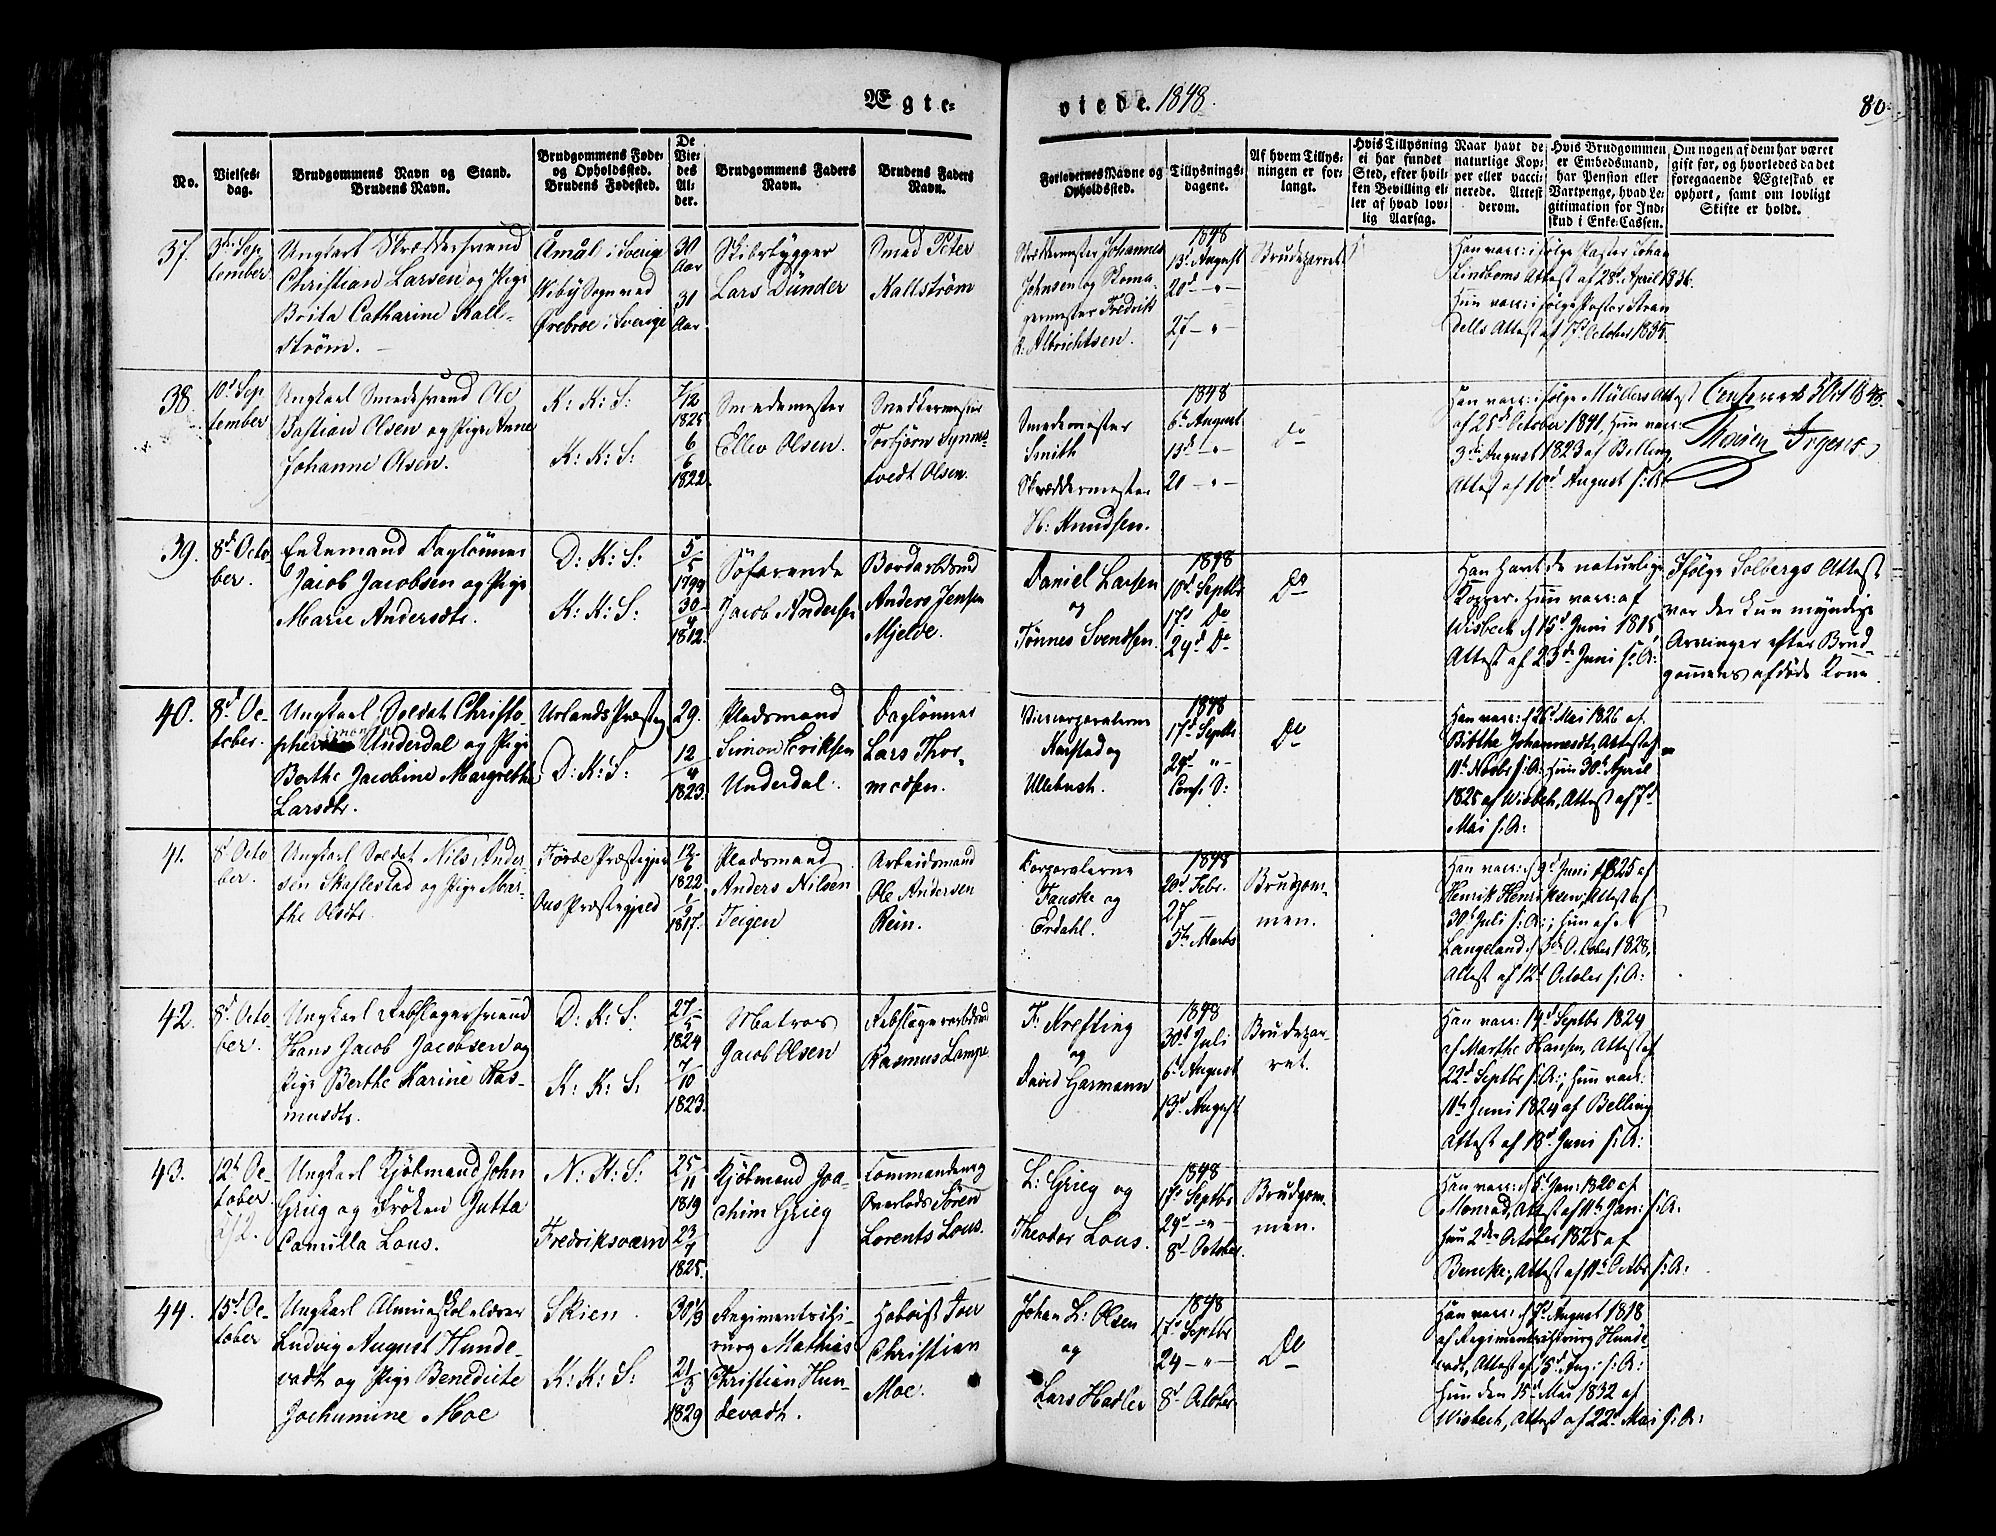 Ægte-
viede. 1848.
80.
No.
Vielses-
dag.
Brudgommens Navn og Stand.
Brudens Navn.
Brudgommens Føde-
og Opholdssted.
Brudens Fødested.
De
Vie-
des
Al-
der.
Brudgommens Faders
Navn.
Brudens Faders
Navn.
Forlovernes Navne og
Opholdssted.
Tillysnings-
dagene.
Af hvem Tillys-
ningen er for-
langt.
Hvis Tillysning
ei har fundet
Sted, efter hvil-
ken Bevilling el-
ler af hvad lov-
lig Aarsag.
Naar havt de
naturlige Kop-
per eller vacci-
nerede. Attest
derom.
Hvis Brudgommen
er Embedsmand,
har Pension eller
Vartpenge, hvad Le-
gitimation for Ind-
skud i Enke-Cassen.
Om nogen af dem har været
gift før, og hvorledes da det
foregaaende Ægteskab er
ophørt, samt om lovligt
Skifte er holdt.
37.
3de Sep-
tember
Ungkarl Skræddersvend
Christian Larsen og Pige
Brita Catharine Kall-
strøm.
Åmål i Sverige
Wiby Sogn ved
Örebroe i Sverige
30
Aar
31
Aar
Skibsbygger
Lars Dünder
Smed Peter
Kallstrøm
Skræddermester Johannes
Johnsen og Skoma-
germester Fredrik
A: Albrichtsen.
1848
13d August
20d — " —
27 — " —
Brudeparret
Han vacc: ifølge Pastor Johan
Lindboms Attest af 28d April 1836.
Hun vacc: ifølge Pastor Stran
dells Attest af 17d October 1835.
38.
10d Sep
tember
Ungkarl Smedesvend Ole
Bastian Olsen og Pige Anne
Johanne Olsen.
K: K: S:
K: K: S:
7/12
1825
6
6
1822
Smedemester
Ellev Olsen.
Snedkermester
Torbjørn Synnes-
tvedt Olsen.
Smedemester
Smith
Skræddermester
H: Knudsen.
1848
6te August
13d — " —
20 — " —
Do
Han vacc: ifølge Müllers Attest
af 25d October 1841. Hun vacc:
3de August 1823 af Belling
Attest af 10d August s: A:
39.
8d Octo-
ber.
Enkemand Daglønner
Jacob Jacobsen og Pige
Marie Andersdtr.
D: K: S:
K: K: S:
5
5
1799
30
4
1812.
Søfarende
Jacob Andersen
Bordarbmd
Anders Jensen
Mjelve.
Daniel Larsen
og
Tønnes Svendsen.
1848
10d Septbr
17d Do
24d Do
Do
Han havt de naturlige
Kopper. Hun vacc: af
Wisbech d 15d Juni 1815,
Attest af 23de Juni s: A:
Ifølge Solbergs Attest
var der kun myndige
Arvinger efter Brud-
gommens afdøde Kone.
40.
8d Oc-
tober.
Ungkarl Soldat Christo-
pher Simonsen Underdal og Pige
Berthe Jacobine Margrethe
Larsdtr.
Urlands Præsteg
D: K: S:
29.
12
4
1823.
Pladsmand
Simon Eriksen
Underdal.
Daglønner
Lars Thor-
modsen.
Vicecorporalerne
Karstad og
Ullebust.
1848
17d Septbr
24d " —
Conf. D:
Do
Han vacc: d 26d Mai 1826 af
Birthe Johannesdtr, Attest af
11te Novbr s: A: Hun 30te April
1825 af Wisbech, Attest af 7d
Mai s: A:
41.
8d Octo
ber.
Ungkarl Soldat Nils Ander-
sen Skaflestad og Pige Mar-
the Olsdtr.
Førde Præstegjæld
Ous Præstegjeld
12
6
1822
1
9
1817.
Pladsmand
Anders Nilsen
Teigen
Arbeidsmand
Ole Andersen
Rein.
Corporalerne
Fauske og
Erdahl.
1848
20d Febr.
27 —
5te Marts
Brudgom-
men.
Han vacc: d 9d Juni 1825 af
Henrik Henriksen, Attest af
30d Juli s: A:; Hun af
Langeland d 3de October 1828,
Attest af 12d October s: A:
42.
8d Octo-
ber.
Ungkarl Rebslagersvend
Hans Jacob Jacobsen og
Pige Berthe Karine Ras-
musdtr.
D: K: S:
K: K: S:
27
5
1824
7
10
1823.
Matros
Jacob Olsen
Rebslagerarbdsmd
Rasmus Lampe.
F: Krefting
og
David Garmann
1848
30d Juli
6te August
13d August
Brudepar-
ret.
Han vacc: 14d Septbr 1824
af Marthe Hansen, Attest af
22d Septbr s: A:; Hun vacc:
11te Juni 1824 af Belling
Attest af 18d Juni s: A:
43.
12te Oc-
tober
Ungkarl Kjøbmand John
Grieg og Frøken Jutta
Camilla Lous.
N: K: S:
Fredriksværn
25
11
1819
23
7
1825.
Kjøbmand Joa-
chim Grieg
Commandeur og
Overlods Sören
Lorents Lous.
L: Grieg og
Theodor Lous.
1848
17d Septbr
24d — " —
8d October.
Brudgom-
men.
Han vacc: d 5 Jan: 1820 af
Monrad, Attest af 11te Jan: s: A:
Hun 2den October 1825 af
Bencke, Attest af 11te Octbr s: A:
44.
15d Oc-
tober
Ungkarl Almueskolelærer
Ludvig August Hunde-
vadt og Pige Benedicte
Jochumine Moe
Skien
K: K: S:
30 1/9
21
3
1829
Regimentschi-
rurg Mathias
Christian Hun-
devadt.
Hoboist Iver
Christian
Moe.
Johan L: Olsen
og
Lars Hadler
1848
17d Septbr
24 — " —
8d October
Do
Han vacc: d 7d August 1818
af Regimentschirurg Hunde-
vadt, Attest af 15d Aug: s: A:
Hun den 15d Mai 1832 af
Wisbech, Attest af 22d Mai s: A: